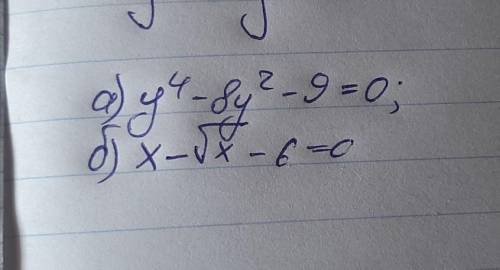 а) y⁴ - 8y² - 9 = 0;
б) x - √x - 6 = 0